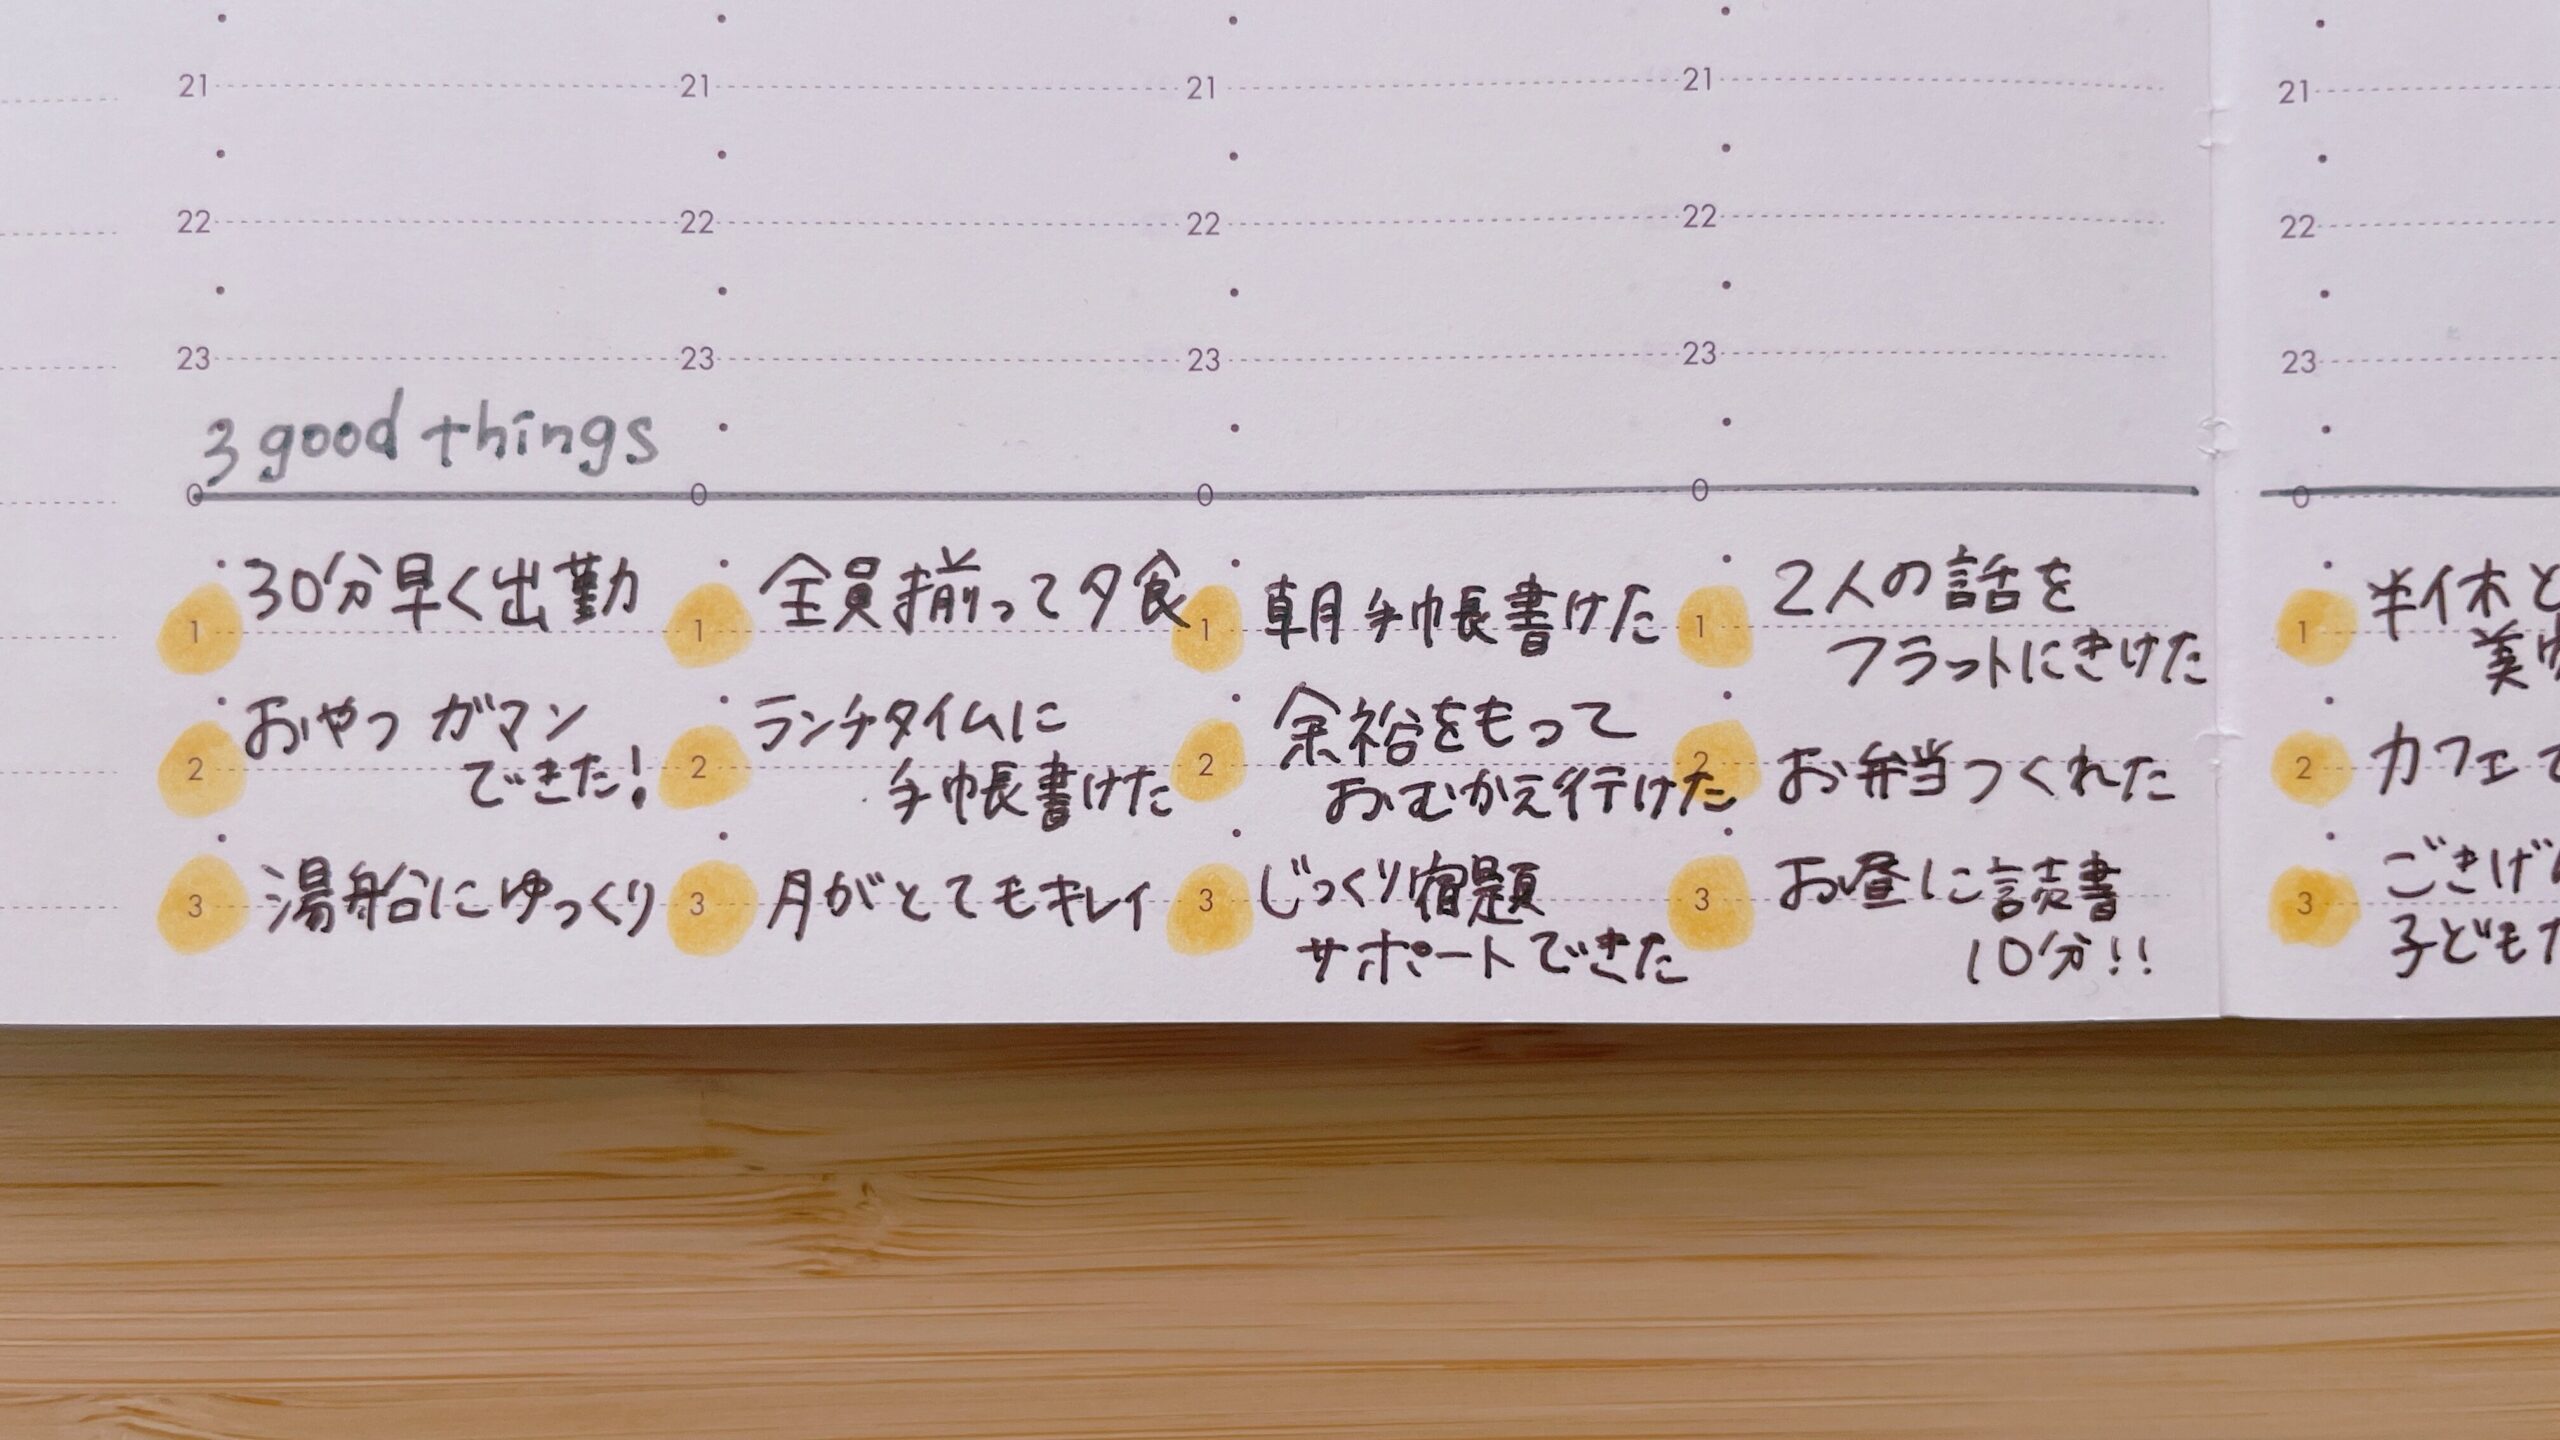 21 21 21 21 21
22 22 22 22 22
23 23 23 23 23
3 good things
0 0 0 0 0
1 30分早く出勤
2 おやつ ガマン
できた!
3 湯船にゆっくり
1 全員揃って夕食
2 ランチタイムに
手帳書けた
3 月がとてもキレイ
1 朝手帳書けた
2 余裕をもって
おむかえ行けた
3 じっくり宿題
サポートできた
1 2人の話を
フラットにきけた
2 お弁当つくれた
3 お昼に読書
10分!!
1 半休と
美
2 カフェで
3 ごきげん
子ども